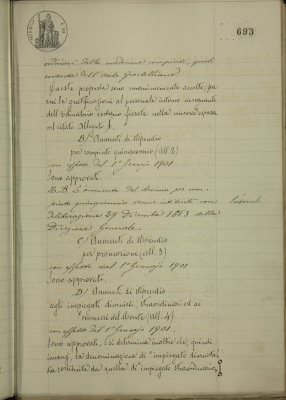 693
ordinari della medesima compiute, quali
risulta dall'
Queste proposte sono unanimemente accolte; per
cui le qualificazioni al personale interno incaricate
dell'
ed citato Allegato A.
B/ Aumenti di stipendio
per compiuto quinquennio (all. 2)
con effetto del 1° Gennaio 1901
sono approvati.
N.B. L'aumento del decimo per com-
piuto quinquennio venne istituito con
deliberazione 29 Dicembre 1883 della
Direzione Generale.
C/ Aumenti di stipendio
per promozione (all. 3)
con effetto dal 1° Gennajo 1901
sono approvati.
D/ Aumenti di stipendio
agli impiegati diurnisti, straordinari ed ai
commessi del Monte (all. 4)
con effetto del 1° Gennajo 1901.
sono approvati, e si determina inoltre che, quindi
innanzi, la denominazione di "impiegato diurnista"
sia sostituita da quella di impiegato straordinario.